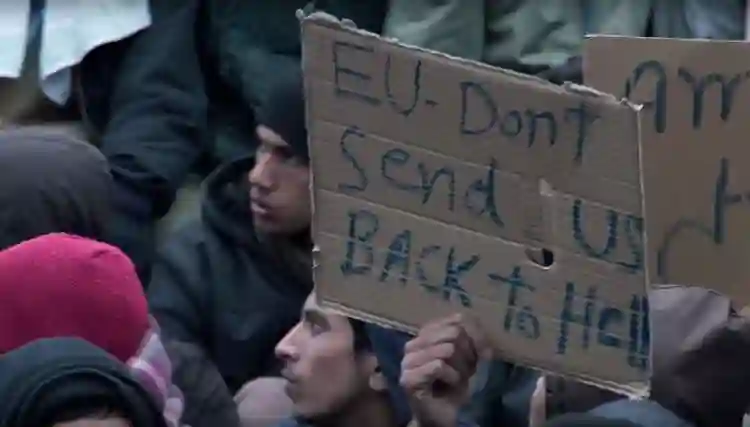 EU- Don't
Send US
BACK to Hell